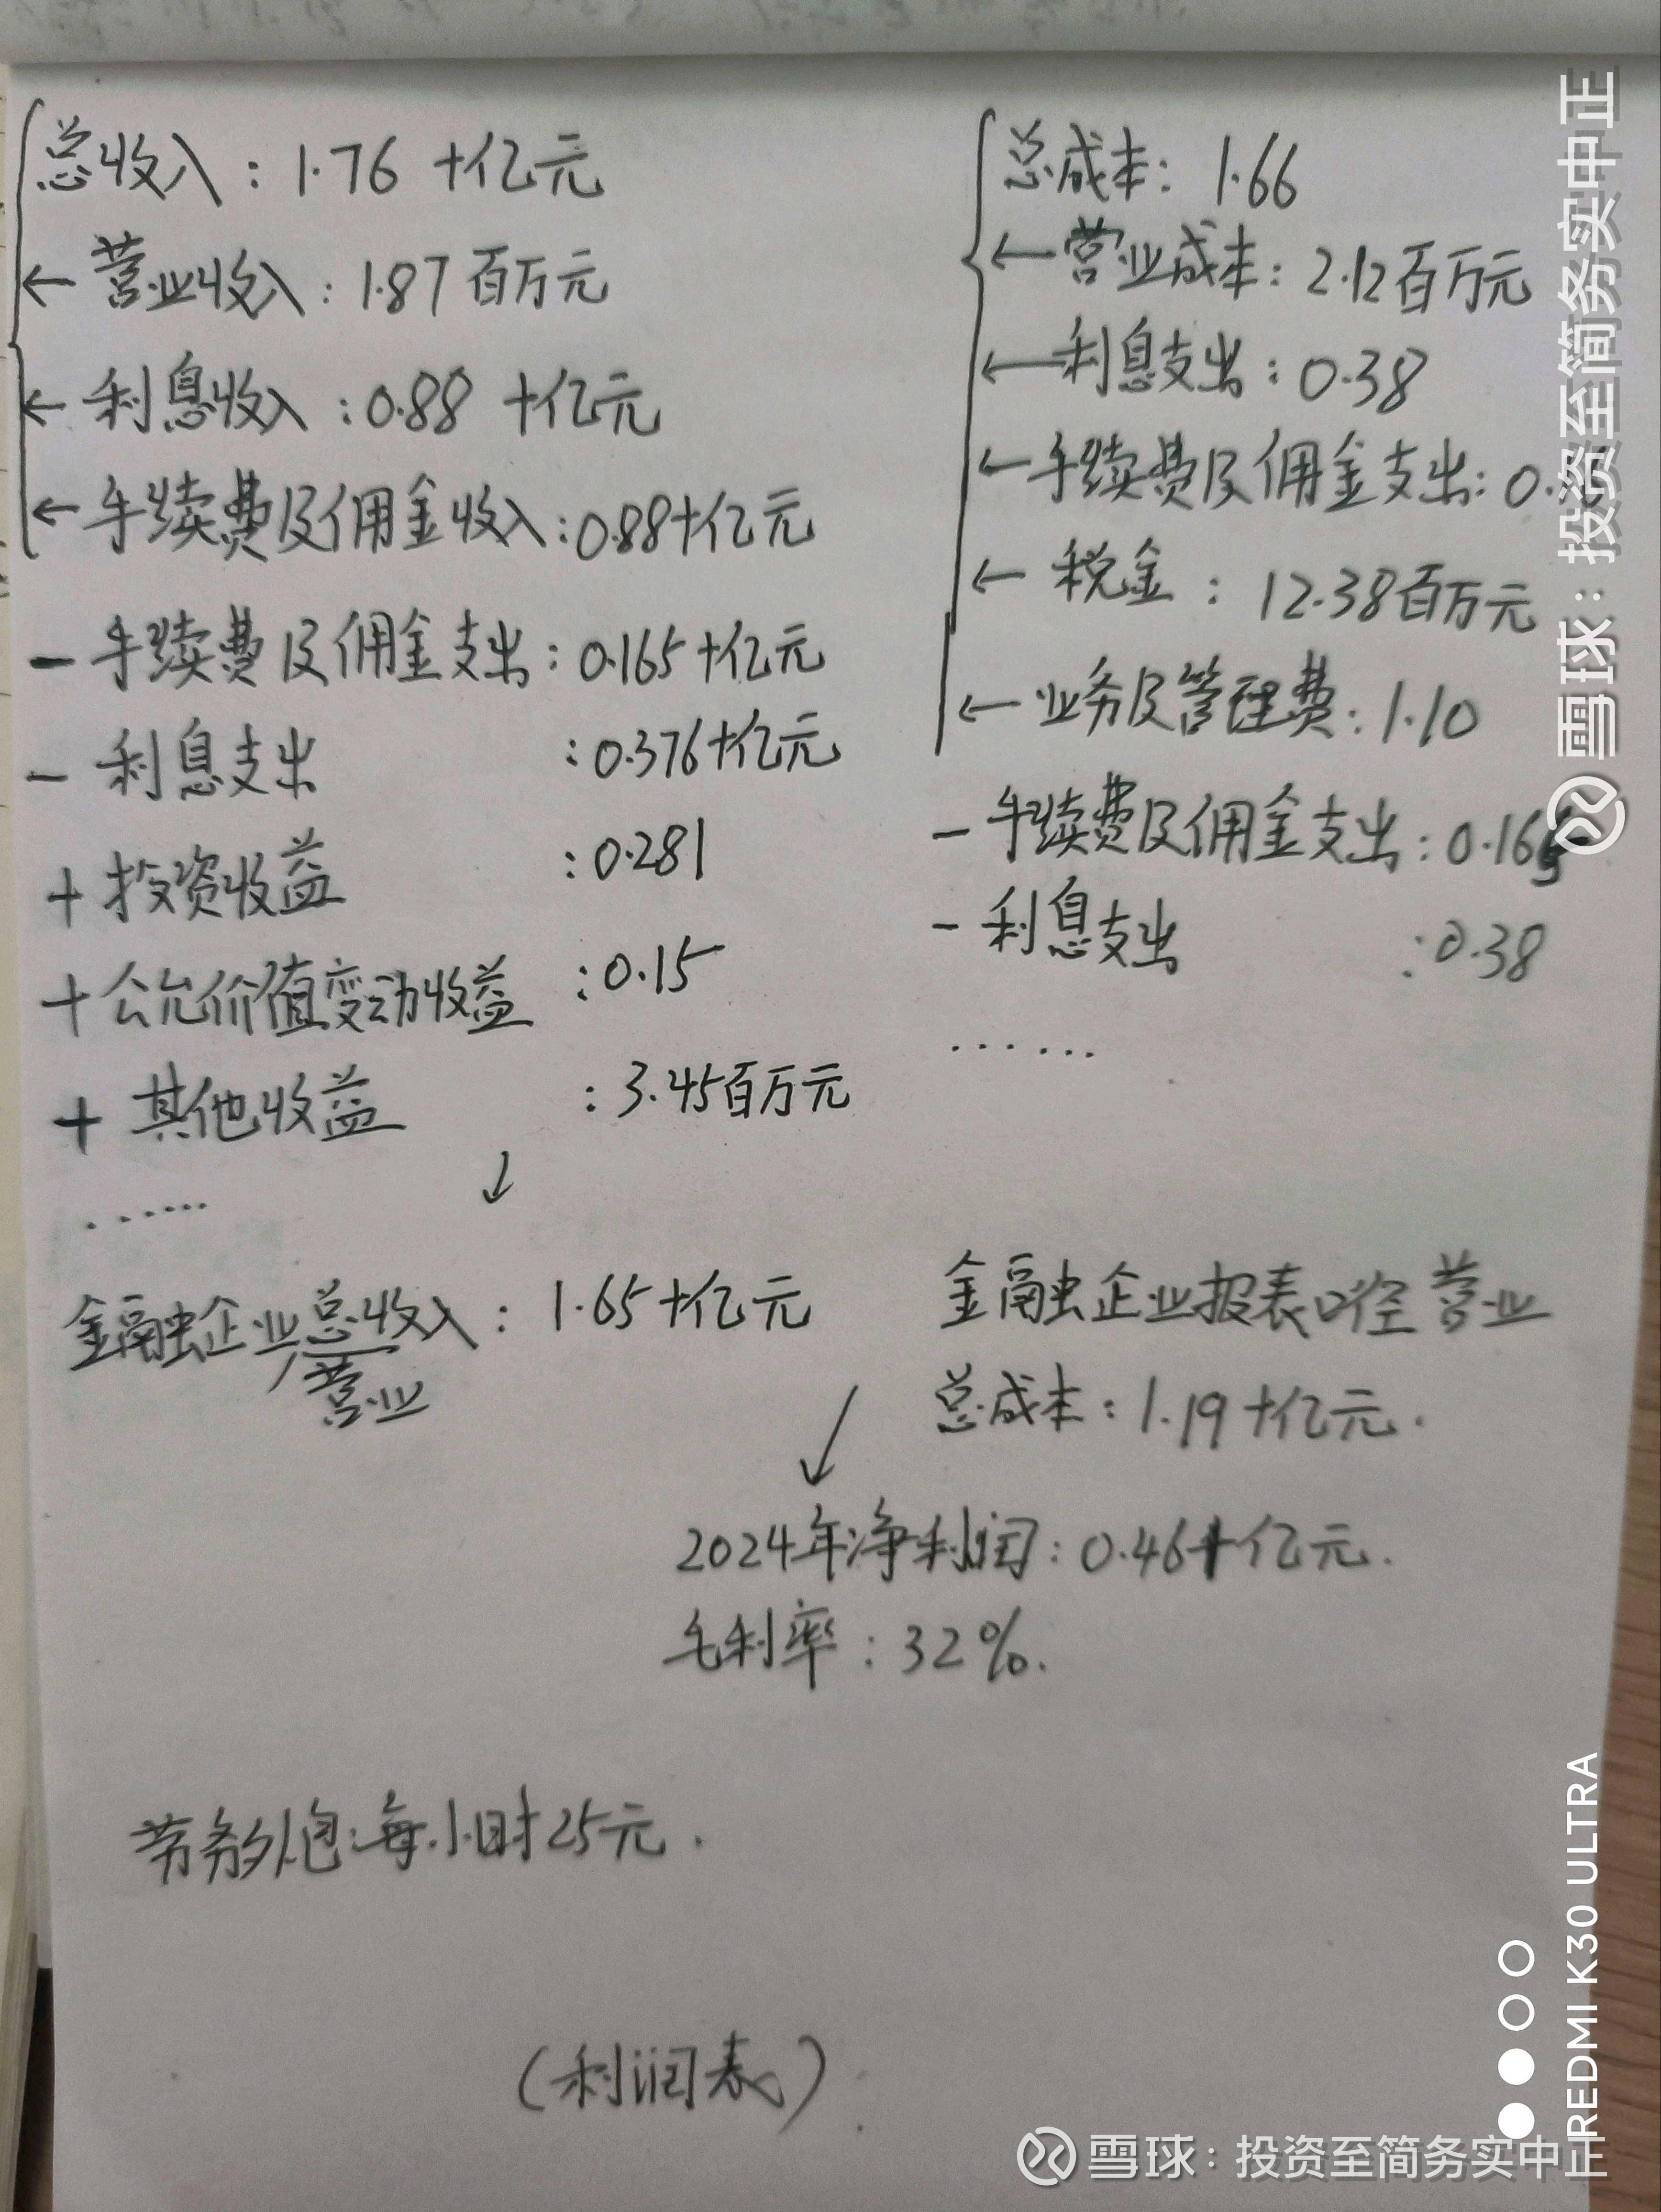 总收入：1.76 十亿元
← 营业收入：1.87百万元
← 利息收入：0.88 十亿元
← 手续费及佣金收入：0.88十亿元
- 手续费及佣金支出：0.165十亿元
- 利息支出：0.376十亿元
+ 投资收益：0.281
+ 公允价值变动收益：0.15
+ 其他收益：3.45百万元
......
↓
金融企业总收入：1.65十亿元
营业
总成本：1.66
← 营业成本：2.12百万元
← 利息支出：0.38
← 手续费及佣金支出：0.
← 税金：12.38百万元
← 业务及管理费：1.10
- 手续费及佣金支出：0.165
- 利息支出：0.38
......
金融企业报表口径营业
总成本：1.19十亿元.
2024年净利润：0.46十亿元.
毛利率：32%.
每小时25元.
(利润表)
雪球：投资至简务实中正
REDMI K30 ULTRA
雪球：投资至简务实中正